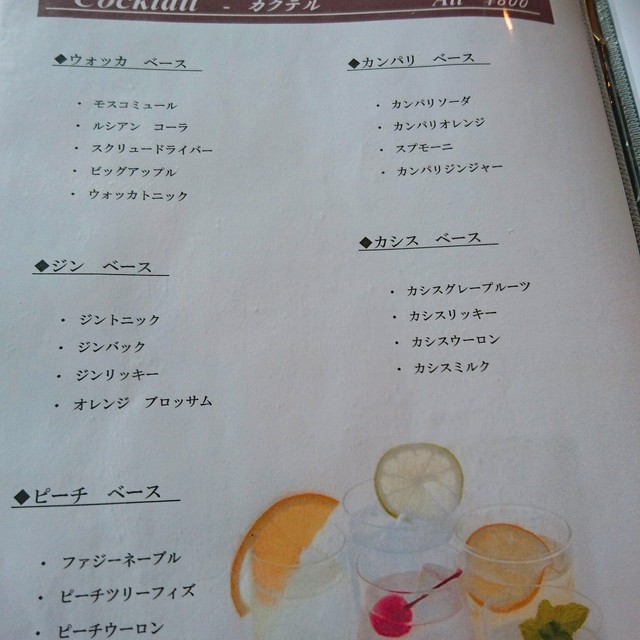 Cocktail - カクテル All ¥800
◆ウォッカ ベース
・ モスコミュール
・ ルシアン コーラ
・ スクリュードライバー
・ ビッグアップル
・ ウォッカトニック
◆ジン ベース
・ ジントニック
・ ジンバック
・ ジンリッキー
・ オレンジ ブロッサム
◆ピーチ ベース
・ ファジーネーブル
・ ピーチツリーフィズ
・ ピーチウーロン
◆カンパリ ベース
・ カンパリソーダ
・ カンパリオレンジ
・ スプモーニ
・ カンパリジンジャー
◆カシス ベース
・ カシスグレープルーツ
・ カシスリッキー
・ カシスウーロン
・ カシスミルク